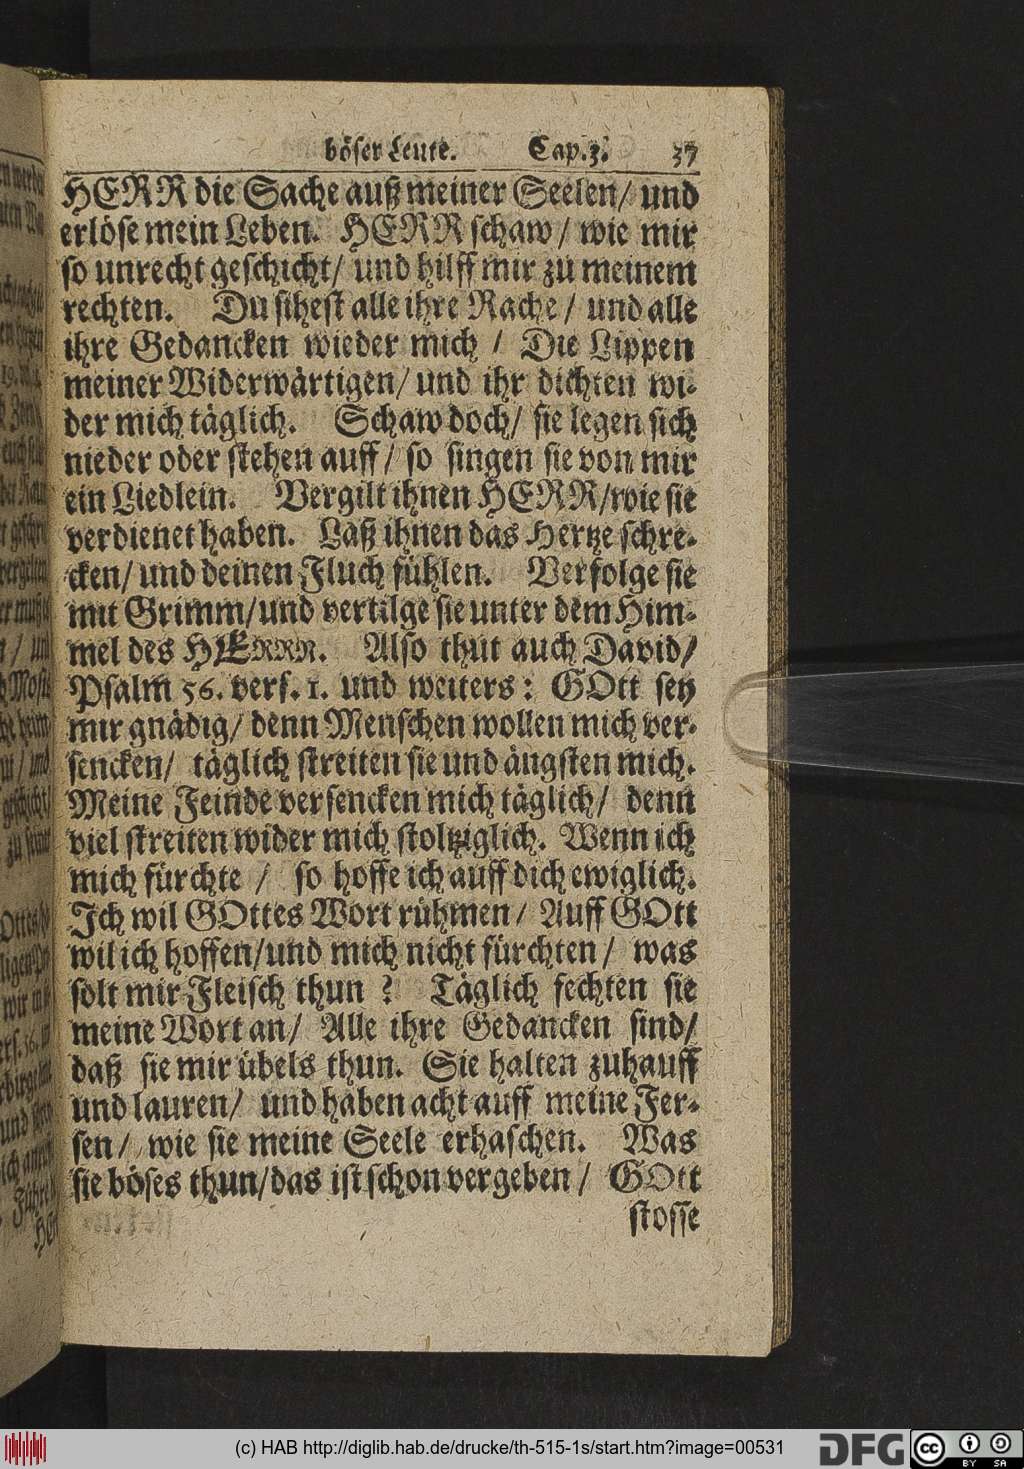 böser Leute. Cap. 3. 37
HERR die Sache auß meiner Seelen/ und
erlöse mein Leben. HERR schaw/ wie mir
so unrecht geschicht/ und hilff mir zu meinem
rechten. Du sihest alle ihre Rache/ und alle
ihre Gedancken wieder mich / Die Lippen
meiner Widerwärtigen/ und ihr dichten wi-
der mich täglich. Schaw doch/ sie legen sich
nieder oder stehen auff/ so singen sie von mir
ein Liedlein. Vergilt ihnen HERR/wie sie
verdienet haben. Laß ihnen das Hertze schre-
cken/ und deinen Fluch fühlen. Verfolge sie
mit Grimm/und vertilge sie unter dem Him-
mel des HERRN. Also thut auch David/
Psalm 56. vers. 1. und weiters: GOtt sey
mir gnädig/ denn Menschen wollen mich ver-
sencken/ täglich streiten sie und ängsten mich.
Meine Feinde versencken mich täglich/ denn
viel streiten wider mich stoltziglich. Wenn ich
mich fürchte / so hoffe ich auff dich ewiglich.
Ich wil GOttes Wort rühmen/ Auff GOtt
wil ich hoffen/und mich nicht fürchten/ was
solt mir Fleisch thun ? Täglich fechten sie
meine Wort an/ Alle ihre Gedancken sind/
daß sie mir übels thun. Sie halten zuhauff
und lauren/ und haben acht auff meine Fer-
sen/ wie sie meine Seele erhaschen. Was
sie böses thun/das ist schon vergeben/ GOtt
stosse
(c) HAB http://diglib.hab.de/drucke/th-515-1s/start.htm?image=00531
DFG
cc BY SA